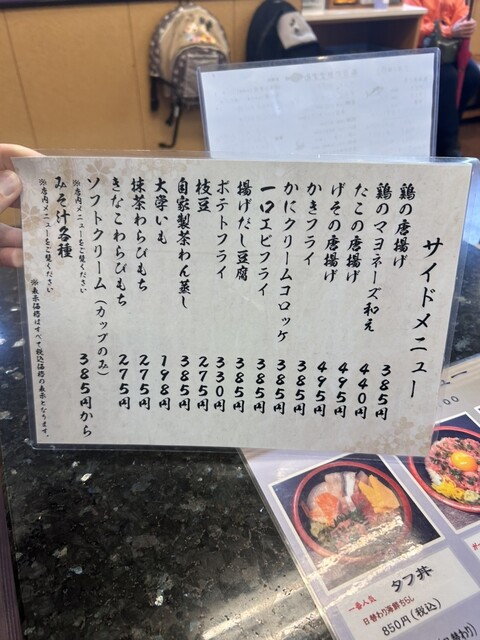 サイドメニュー
鶏の唐揚げ 385円
鶏のマヨネーズ和え 440円
たこの唐揚げ 495円
げその唐揚げ 495円
かきフライ 385円
かにクリームコロッケ 385円
一口エビフライ 385円
揚げだし豆腐 385円
ポテトフライ 330円
枝豆 275円
自家製茶わん蒸し 385円
大学いも 198円
抹茶わらびもち 275円
きなこわらびもち 275円
ソフトクリーム（カップのみ） 385円から
※店内メニューをご覧ください
みそ汁各種
※店内メニューをご覧ください
※表示価格はすべて税込価格の表示となります。
タフ丼
一番人気
日替わり海鮮ちらし
850円(税込)
日替わり)